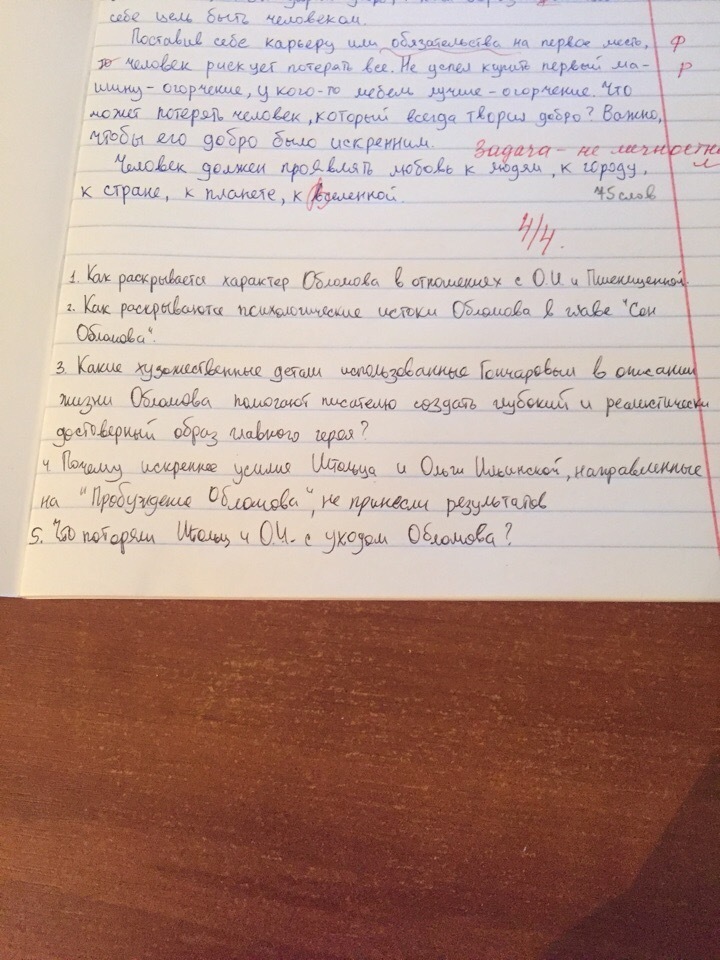 себе цель быть человеком.
Поставив себе карьеру или обязательства на первое место, Ф
то человек рискует потерать все. Не успел купить первый ма- р
шину - огорчение, у кого-то мебель лучше - огорчение. Что
может потерять человек, который всегда творил добро? Важно,
чтобы его добро было искренним.
Задача - не личностн
Человек должен проявлять любовь к людям, к городу, л
к стране, к планете, к вселенной. 75 слов
4/4.
1. Как раскрывается характер Обломова в отношениях с О.И и Пшеницынной.
2. Как раскрываются психологические истоки Обломова в главе "Сон
Обломова".
3. Какие художественные детали использованные Гончаровым в описании
жизни Обломова помогают писателю создать глубокий и реалистически
достоверный образ главного героя?
4 Почему искренное усилия Штольца и Ольги Ильинской, направленные
на "Пробуждение Обломова", не принесли результатов
5. Что потеряли Штольц и О.И. с уходом Обломова?